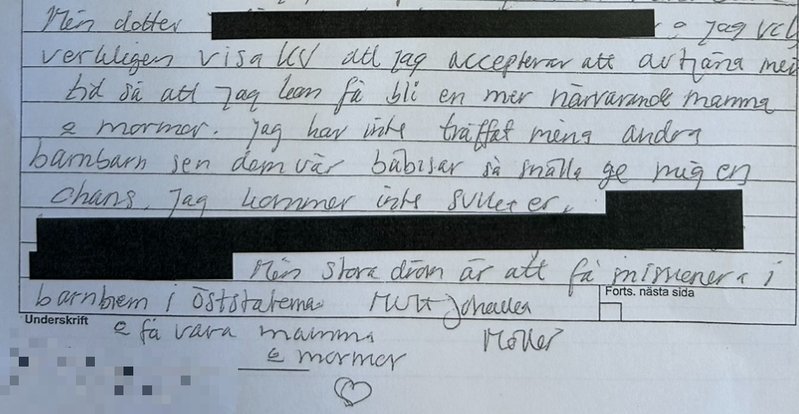 Min dotter
& jag vill
verkligen visa KV att jag accepterar att avtjäna min
tid så att jag kan få bli en mer närvarande mamma
& mormor. Jag har inte träffat mina andra
barnbarn sen dem var bäbisar så snälla ge mig en
chans. Jag kommer inte svika er.
Min stora dröm är att få missionera i
barnhem i öststaterna
Forts. nästa sida
Underskrift
& få vara mamma
& mormor